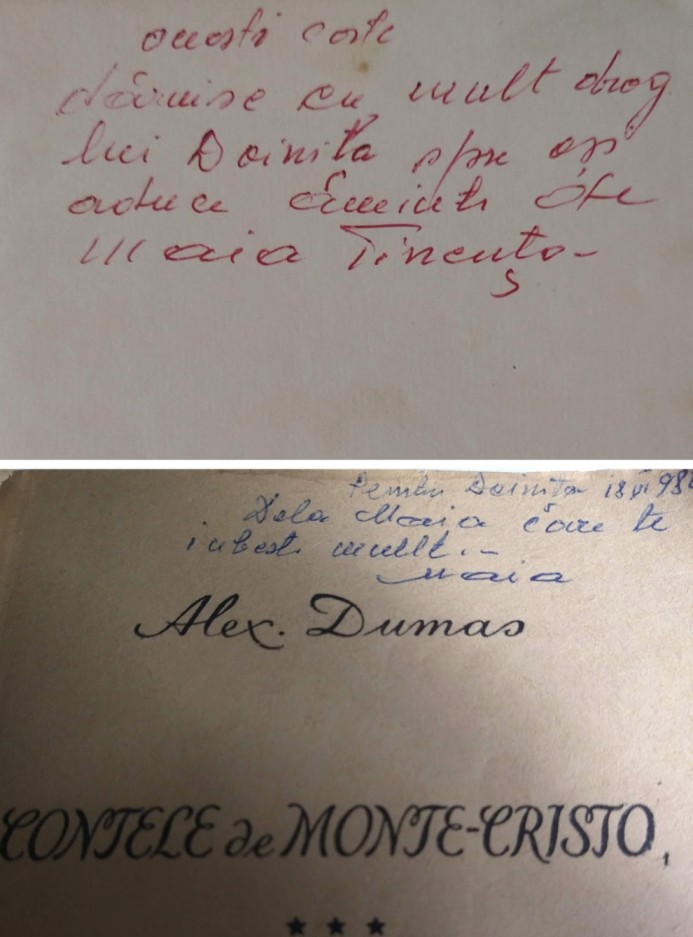 acestă carte
dăruise cu mult drag
lui Doinița spre ași
aduce aminte de
Maia Tincuța-
Pentru Doinița 18 VI 98
Dela Maia care te
iubește mult.-
Maia
Alex. Dumas
CONTELE de MONTE-CRISTO,
★ ★ ★